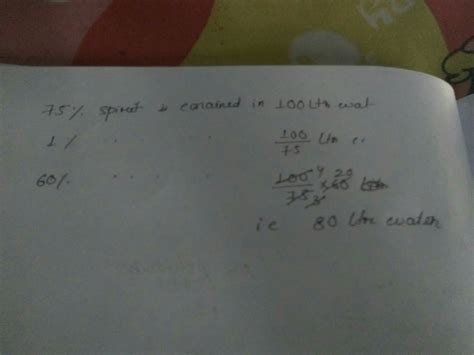 75% spirit is conained in 100 Ltr wat
1% " " " 100/75 Ltr "
60% " " " 100/75 × 60 Ltr
ie 80 Ltr water